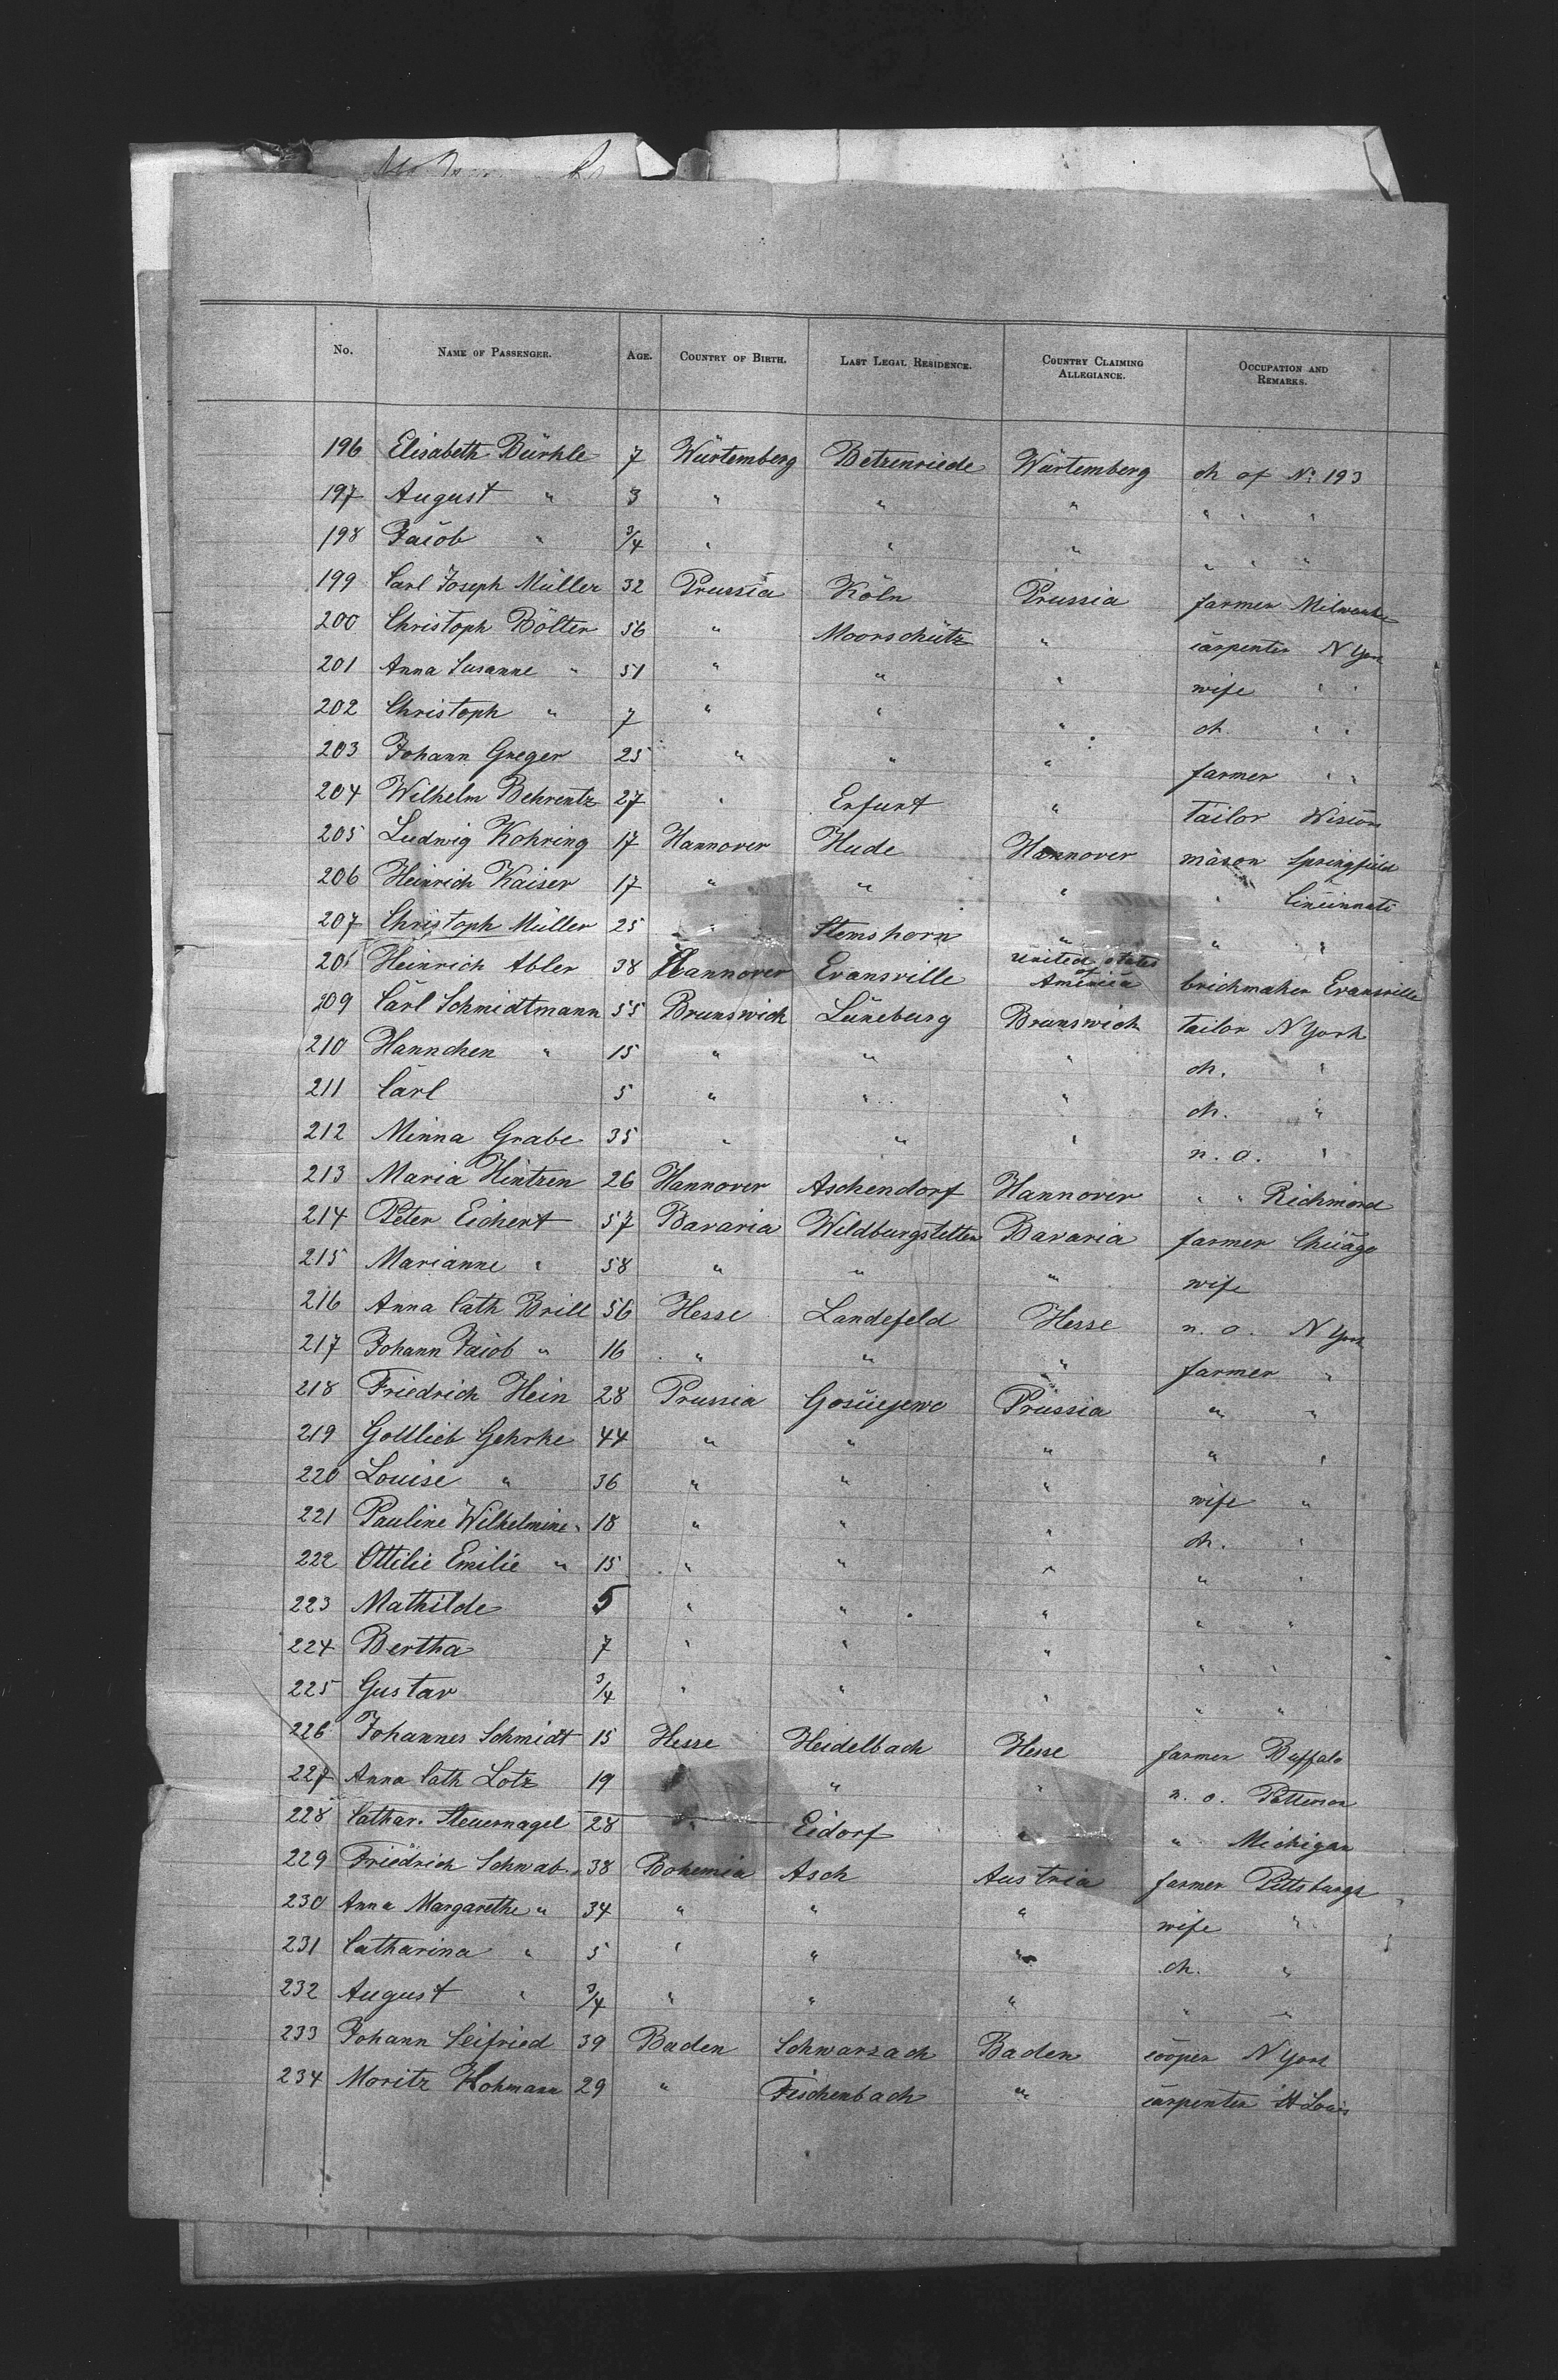 No. Name of Passenger. Age. Country of Birth. Last Legal Residence. Country Claiming Allegiance. Occupation and Remarks.
196 Elisabeth Bürkle 7 Würtemberg Betzenriede Würtemberg ch of No 193
197 August " 3 " " " " " "
198 Jacob " 3/4 " " " " " "
199 Carl Joseph Müller 32 Prussia Köln Prussia farmer Milwaukee
200 Christoph Bölter 56 " Moorschütz " carpenter N York
201 Anna Susanne " 51 " " " wife " "
202 Christoph " 7 " " " ch. " "
203 Johann Greger 25 " " " farmer " "
204 Wilhelm Behrentz 27 " Erfurt " tailor Wiscon
205 Ludwig Kohring 17 Hannover Hude Hannover mason Springfield
206 Heinrich Kaiser 17 " " " " Cincinnati
207 Christoph Müller 25 " Stemshorn " " "
208 Heinrich Abler 38 Hannover Evansville United States of America brickmaker Evansville
209 Carl Schmidtmann 55 Brunswick Lüneburg Brunswick tailor N York
210 Hannchen " 15 " " " ch. "
211 Carl 5 " " " ch. "
212 Minna Grabe 35 " " " n. o. "
213 Maria Hintzen 26 Hannover Aschendorf Hannover " " Richmond
214 Peter Eichert 57 Bavaria Wildburgstetten Bavaria farmer Chicago
215 Marianne " 58 " " " wife
216 Anna Cath Brill 56 Hesse Landefeld Hesse n. o. N York
217 Johann Jacob " 16 " " " farmer "
218 Friedrich Hein 28 Prussia Gosciejewo Prussia " "
219 Gottlieb Gehrke 44 " " " " "
220 Louise " 36 " " " wife "
221 Pauline Wilhelmine " 18 " " " ch. "
222 Ottilie Emilie " 15 " " " " "
223 Mathilde 5 " " " " "
224 Bertha 7 " " " " "
225 Gustav 3/4 " " " " "
226 Johannes Schmidt 15 Hesse Heidelbach Hesse farmer Buffalo
227 Anna Cath Lotz 19 " " " n. o. Patterson
228 Cathar. Steuernagel 28 " Eidorf " " Michigan
229 Friedrich Schwab 38 Bohemia Asch Austria farmer Pittsburgh
230 Anna Margarethe " 34 " " " wife "
231 Catharina " 5 " " " ch. "
232 August " 3/4 " " " " "
233 Johann Seifried 39 Baden Schwarzach Baden cooper N York
234 Moritz Hohmann 29 " Fischenbach " carpenter St Louis